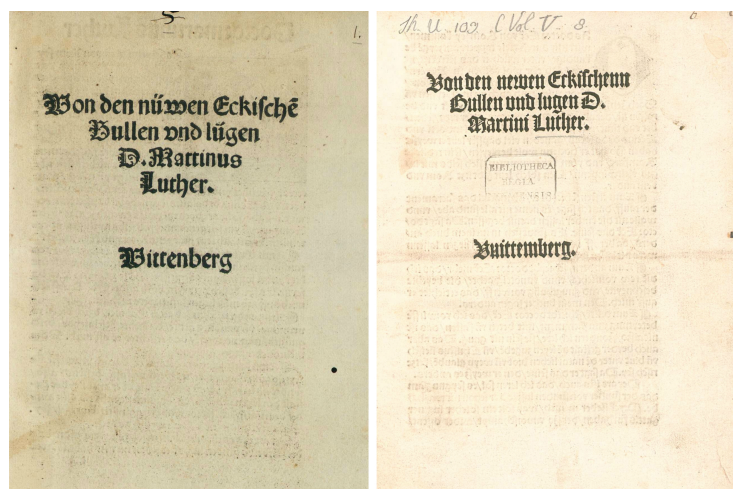 1.
Von den nüwen Eckischē
Bullen vnd lügen
D. Martinus
Luther.
Wittenberg
Th. U. 109. C Vol. V. 8
Von den newen Eckischenn
Bullen vnd lugen D.
Martini Luther.
BIBLIOTHECA
REGIA
Vuittemberg.